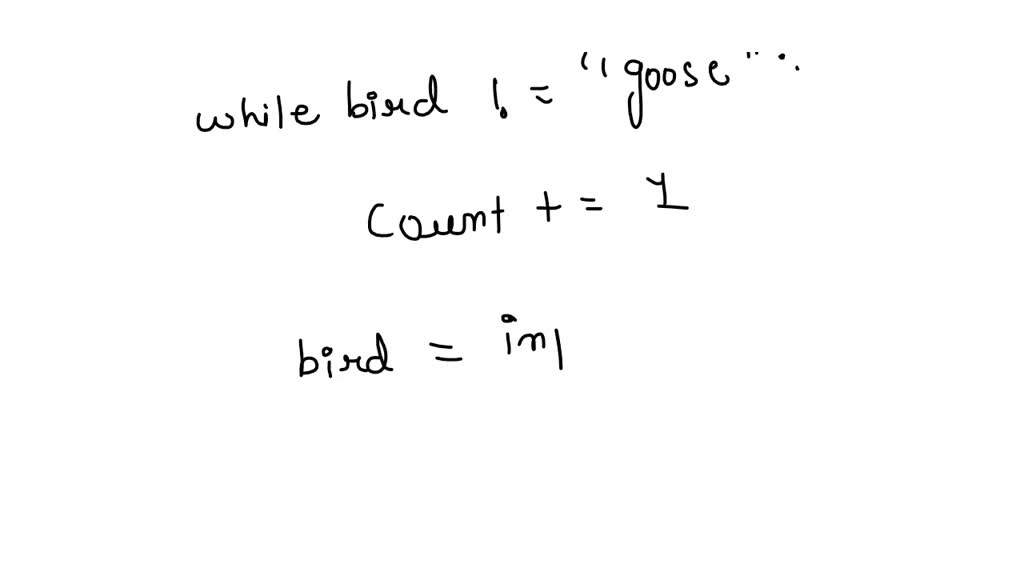 while bird != "goose":
Count += 1
bird = inp